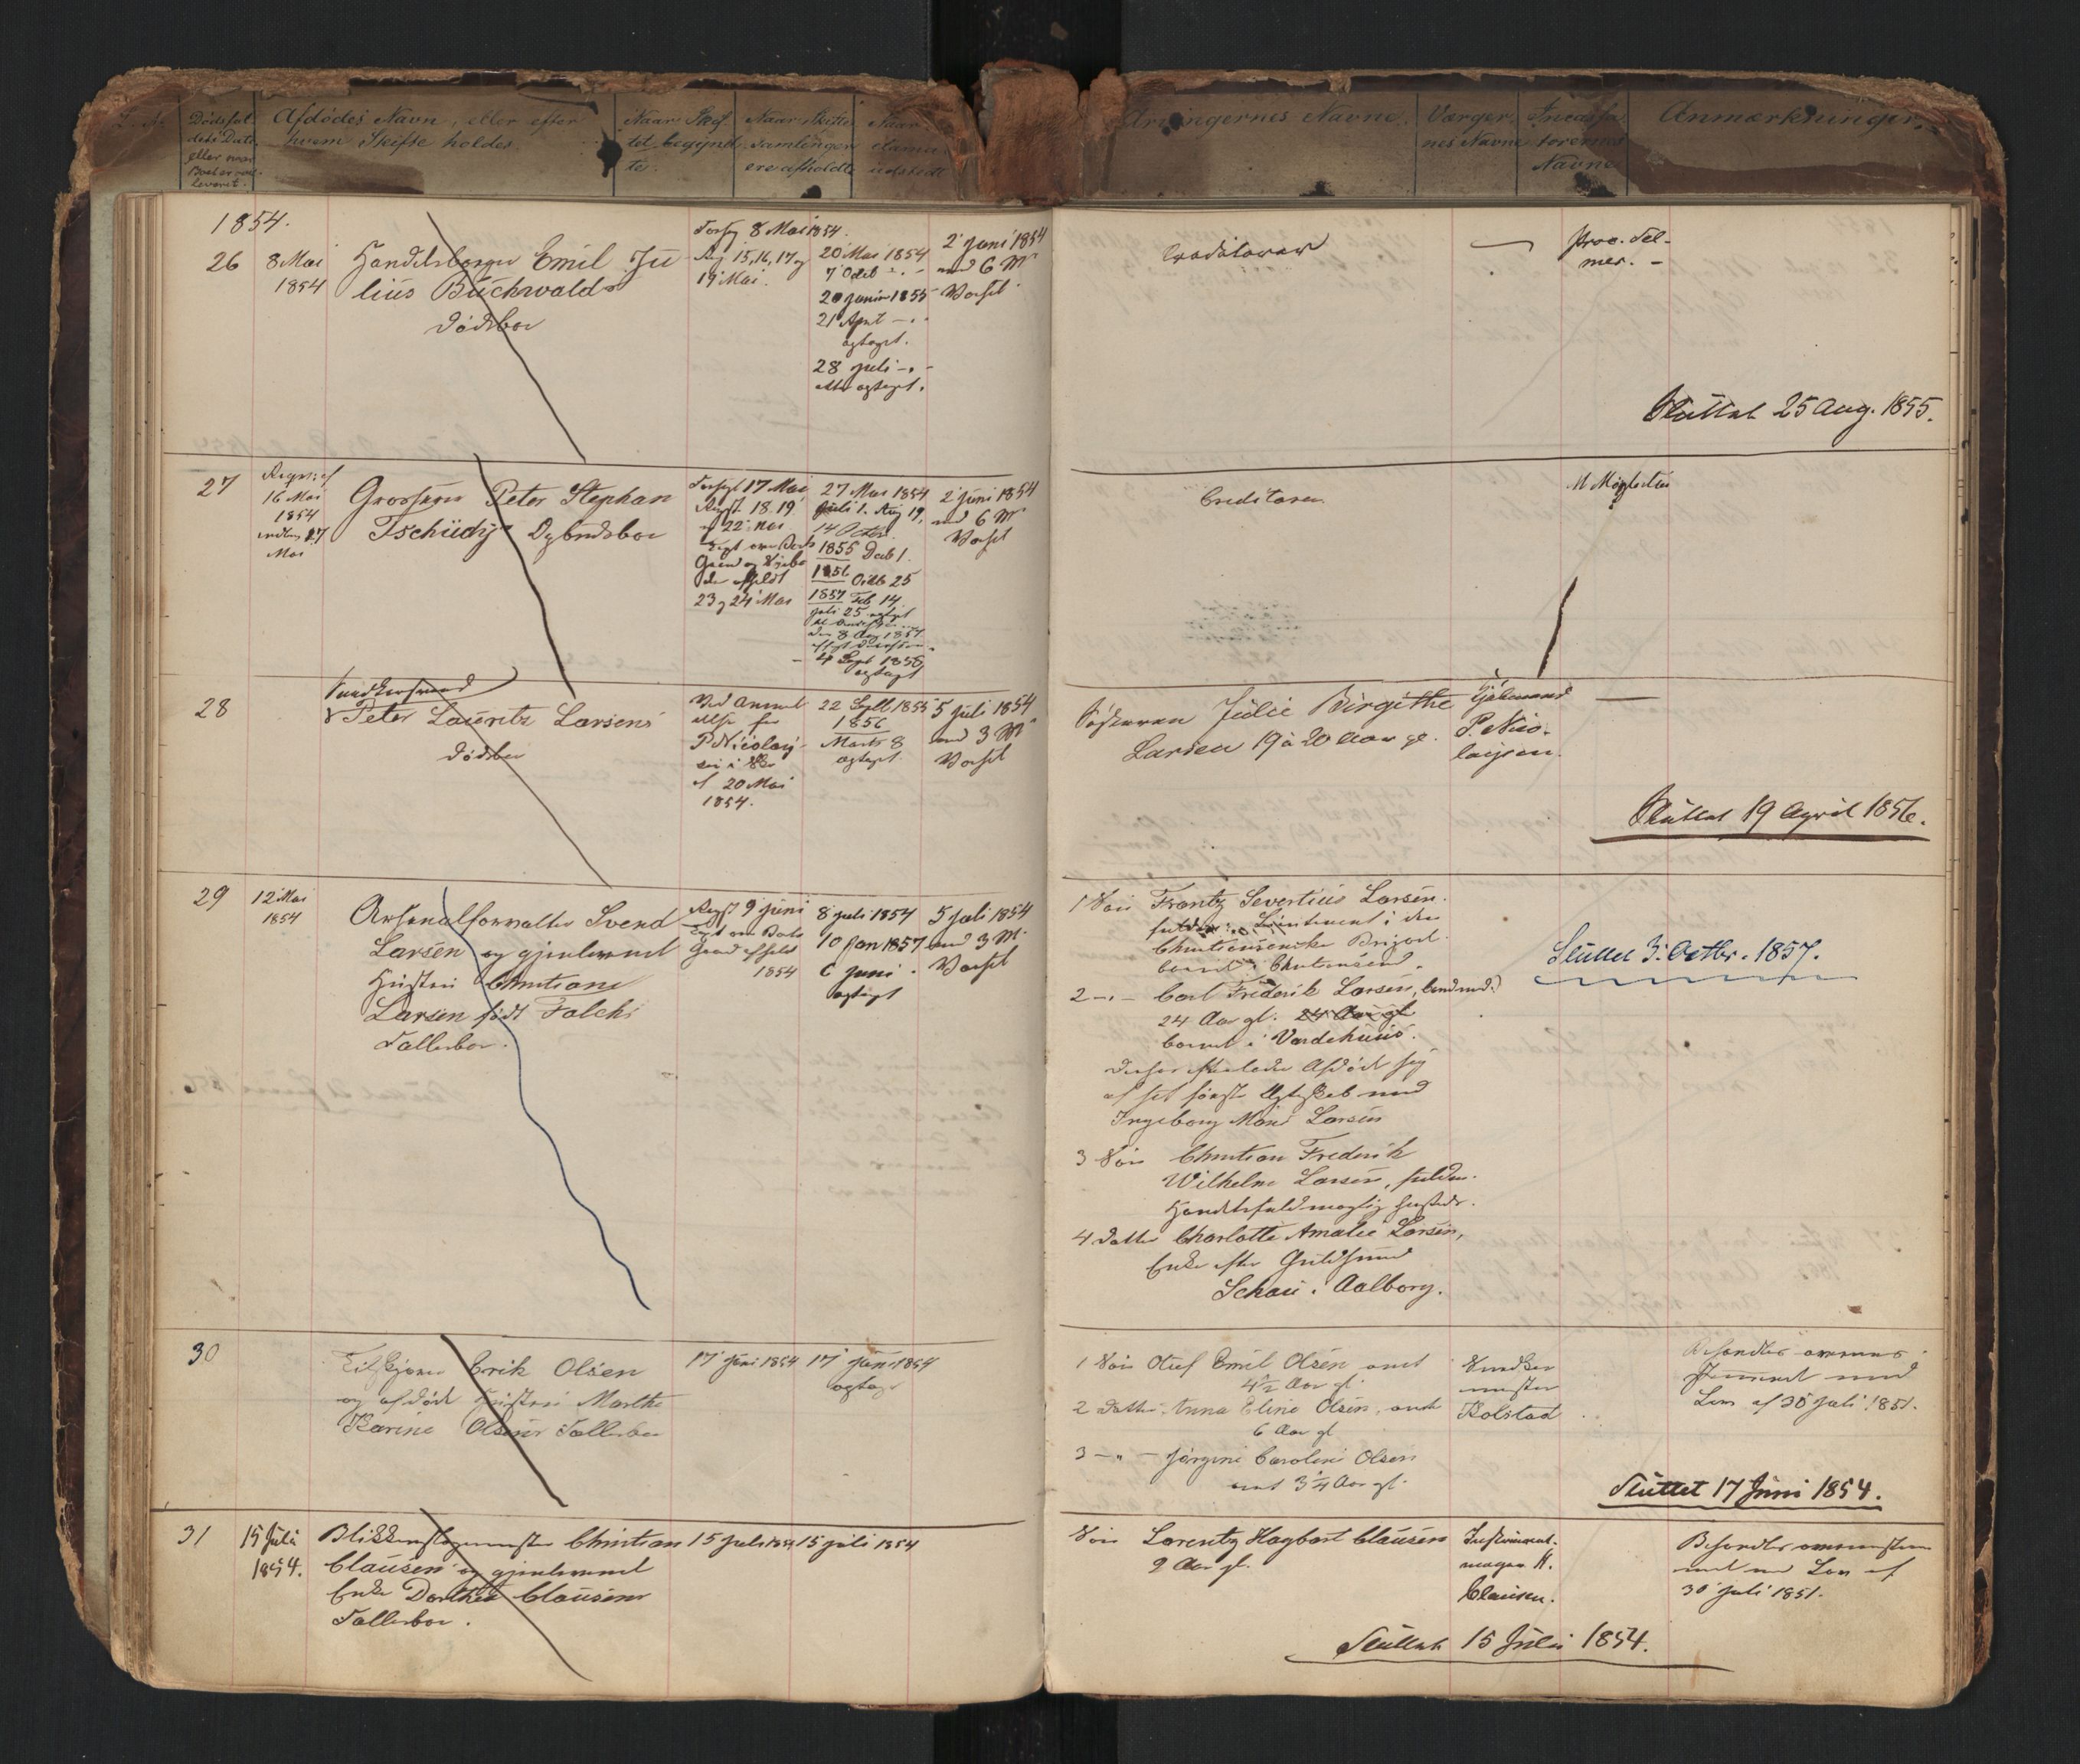 Dødsfal
dets Dato
eller naar
Boet er over
leveret.
Afdødes Navn, eller efter
hvem Skifte holdes.
Naar Skif
tet begynd
te.
Naar Skifte
samlingen
ere afholdte
Naar
udstedt
Arvingernes Navne.
Værger
nes Navne
Incassa
torernes
Navne
Anmærkninger.
1854.
26
8 Mai
1854
Handelsborger Emil Ju
lius Buchwalds
Dødsbo
8 Mai 1854.
15, 16, 17 og
19 Mai.
20 Mai 1854
7 Octb - . -
20 Januar 1855
21 April - . -
optaget.
28 Juli - . -
atter optaget.
2 Juni 1854
med 6 Mrs
Varsel
Creditorer
Proc. Fel-
mer. -
Sluttet 25 Aug. 1855.
27
16 Mai
1854
Mai
Grosserer Peter Stephan
Tschudy Opbudsbo
17 Mai
Regst. 18. 19
og 22 Mai
Gaard og
23 og 24 Mai
27 Mai 1854
Juli 1. Aug 19,
14 Octbr.
1855 Decb 1.
1856
Octb 25
1857 Feb 14
Juli 25 optaget
den 8 Aug 1857
4 Sept 1858
optaget
2 Juni 1854
med 6 Mrs
Varsel
Creditorer
28
Peter Lauritz Larsens
Dødsbo
Ved Anmel
delse fra
P Nicolay
sen i
af 20 Mai
1854.
22 Septb 1855
1856
Marts 8
optaget
5 Juli 1854
med 3 Mrs
Varsel
Søsteren Julie Birgithe
Larsen 19 à 20 Aar gl.
P. Nico-
laysen.
Sluttet 19 April 1856.
29
12 Mai
1854
Arsenalforvalter Svend
Larsen og gjenlevende
Hustru Christiane
Larsen født Falchs
Fællesbo.
Regst 9 Juni
Gaard afholdt
1854
8 Juli 1854
10 Jan 1857
6 Juni -
optaget
5 Juli 1854
med 3 M.
Varsel
1 Søn Frantz Severtius Larsen.
Lieutenant i den
Christiansandske Brigade.
boende i Christiansand.
2 - . - Carl Frederik Larsen,
24 Aar gl. 24 Aar gl
boende i Vardehuus.
Disse efterlod Afdøde sig
af sit første Ægteskab med
Ingeborg Marie Larsen
3 Søn Christian Frederik
Wilhelm Larsen, fuldm.
Handelsfuldmægtig
4 Datter Charlotte Amalie Larsen,
Enke efter Guldsmed
Schau i Aalborg.
Sluttet 3. Octbr. 1857.
30
Erik Olsen
og afdøde Hustru Marthe
Karine Olsens Fællesbo
17 Juni 1854
17 Juni 1854
optaget
1 Søn Oluf Emil Olsen omt
4½ Aar gl.
2 Datter Anna Eline Olsen, omt
6 Aar gl
3 - " - Jørgine Caroline Olsen
omt 3¼ Aar gl.
Snedker
mester
Kolstad
Behandles overens
stemmende med
Lov af 30 Juli 1851.
Sluttet 17 Juni 1854.
31
15 Juli
1854.
Blikkenslagermester Christian
Clausen og gjenlevende
Enke Dorthea Clausens
Fællesbo.
15 Juli 1854
15 Juli 1854
Søn Lorentz Hagbart Clausen
9 Aar gl.
Instrument-
mager H.
Clausen.
Behandles overensstem
mende med Lov af
30 Juli 1851.
Sluttet 15 Juli 1854.